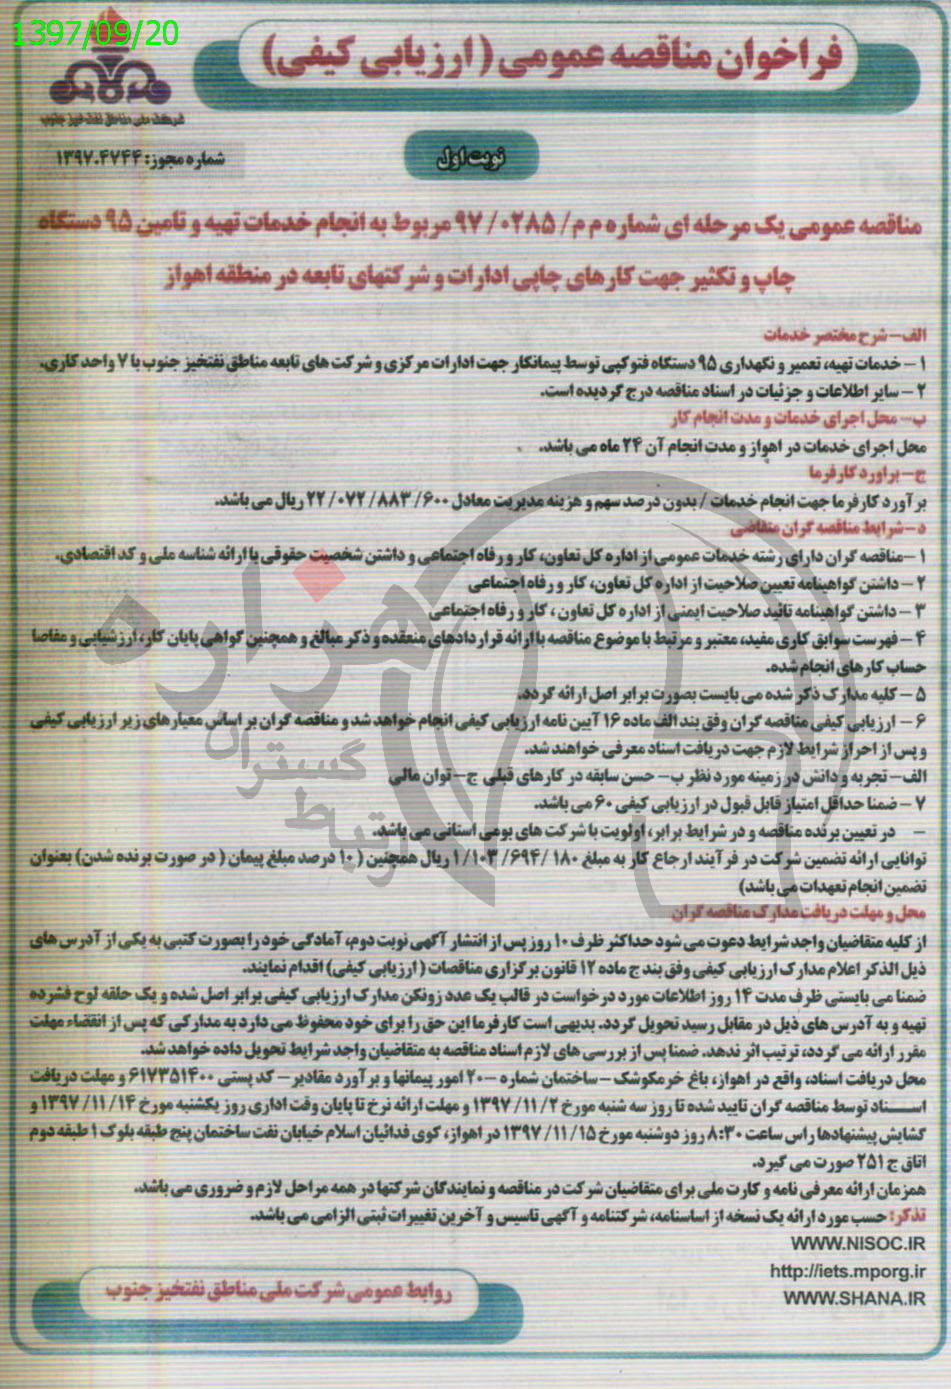 1397/09/20
فراخوان مناقصه عمومی (ارزیابی کیفی)
شرکت ملی مناطق نفت خیز جنوب
نوبت اول
شماره مجوز: ۱۳۹۷.۴۷۴۴
مناقصه عمومی یک مرحله ای شماره م م/ ۰۲۸۵/ ۹۷ مربوط به انجام خدمات تهیه و تامین ۹۵ دستگاه
چاپ و تکثیر جهت کارهای چاپی ادارات و شرکتهای تابعه در منطقه اهواز
الف- شرح مختصر خدمات
۱ – خدمات تهیه، تعمیر و نگهداری ۹۵ دستگاه فتوکپی توسط پیمانکار جهت ادارات مرکزی و شرکت های تابعه مناطق نفتخیز جنوب با ۷ واحد کاری.
۲ – سایر اطلاعات و جزئیات در اسناد مناقصه درج گردیده است.
ب- محل اجرای خدمات و مدت انجام کار
محل اجرای خدمات در اهواز و مدت انجام آن ۲۴ ماه می باشد.
ج- براورد کارفرما
برآورد کارفرما جهت انجام خدمات / بدون درصد سهم و هزینه مدیریت معادل ۶۰۰/ ۸۸۳/ ۰۷۲/ ۲۲ ریال می باشد.
د- شرایط مناقصه گران متقاضی
۱ –مناقصه گران دارای رشته خدمات عمومی از اداره کل تعاون، کار و رفاه اجتماعی و داشتن شخصیت حقوقی با ارائه شناسه ملی و کد اقتصادی.
۲ – داشتن گواهینامه تعیین صلاحیت از اداره کل تعاون، کار و رفاه اجتماعی
۳ – داشتن گواهینامه تائید صلاحیت ایمنی از اداره کل تعاون ، کار و رفاه اجتماعی
۴ – فهرست سوابق کاری مفید، معتبر و مرتبط با موضوع مناقصه با ارائه قراردادهای منعقده و ذکر مبالغ و همچنین گواهی پایان کار، ارزشیابی و مفاصا
حساب کارهای انجام شده.
۵ – کلیه مدارک ذکر شده می بایست بصورت برابر اصل ارائه گردد.
۶ – ارزیابی کیفی مناقصه گران وفق بند الف ماده ۱۶ آیین نامه ارزیابی کیفی انجام خواهد شد و مناقصه گران بر اساس معیارهای زیر ارزیابی کیفی
و پس از احراز شرایط لازم جهت دریافت اسناد معرفی خواهند شد.
الف- تجربه و دانش در زمینه مورد نظر ب- حسن سابقه در کارهای قبلی ج- توان مالی
۷ – ضمنا حداقل امتیاز قابل قبول در ارزیابی کیفی ۶۰ می باشد.
– در تعیین برنده مناقصه و در شرایط برابر، اولویت با شرکت های بومی استانی می باشد.
توانایی ارائه تضمین شرکت در فرآیند ارجاع کار به مبلغ ۱۸۰ /۶۹۴/ ۱۰۳/ ۱ ریال همچنین ( ۱۰ درصد مبلغ پیمان ( در صورت برنده شدن) بعنوان
تضمین انجام تعهدات می باشد)
محل و مهلت دریافت مدارک مناقصه گران
از کلیه متقاضیان واجد شرایط دعوت می شود حداکثر ظرف ۱۰ روز پس از انتشار آگهی نوبت دوم، آمادگی خود را بصورت کتبی به یکی از آدرس های
ذیل الذکر اعلام مدارک ارزیابی کیفی وفق بند ج ماده ۱۲ قانون برگزاری مناقصات ( ارزیابی کیفی) اقدام نمایند.
ضمنا می بایستی ظرف مدت ۱۴ روز اطلاعات مورد درخواست در قالب یک عدد زونکن مدارک ارزیابی کیفی برابر اصل شده و یک حلقه لوح فشرده
تهیه و به آدرس های ذیل در مقابل رسید تحویل گردد. بدیهی است کارفرما این حق را برای خود محفوظ می دارد به مدارکی که پس از انقضاء مهلت
مقرر ارائه می گردد، ترتیب اثر ندهد. ضمنا پس از بررسی های لازم اسناد مناقصه به متقاضیان واجد شرایط تحویل داده خواهد شد.
محل دریافت اسناد، واقع در اهواز، باغ خرمکوشک – ساختمان شماره –۲۰ امور پیمانها و برآورد مقادیر – کد پستی ۶۱۷۳۵۱۴۰۰ و مهلت دریافت
اسناد توسط مناقصه گران تایید شده تا روز سه شنبه مورخ ۲/ ۱۱/ ۱۳۹۷ و مهلت ارائه نرخ تا پایان وقت اداری روز یکشنبه مورخ ۱۴/ ۱۱/ ۱۳۹۷ و
گشایش پیشنهادها راس ساعت ۸:۳۰ روز دوشنبه مورخ ۱۵/ ۱۱/ ۱۳۹۷ در اهواز، کوی فدائیان اسلام خیابان نفت ساختمان پنج طبقه بلوک ۱ طبقه دوم
اتاق ج ۲۵۱ صورت می گیرد.
همزمان ارائه معرفی نامه و کارت ملی برای متقاضیان شرکت در مناقصه و نمایندگان شرکتها در همه مراحل لازم و ضروری می باشد.
تذکر: حسب مورد ارائه یک نسخه از اساسنامه، شرکتنامه و آگهی تاسیس و آخرین تغییرات ثبتی الزامی می باشد.
WWW.NISOC.IR
http://iets.mporg.ir
WWW.SHANA.IR
روابط عمومی شرکت ملی مناطق نفتخیز جنوب
هزاره
گستران
ارتباط